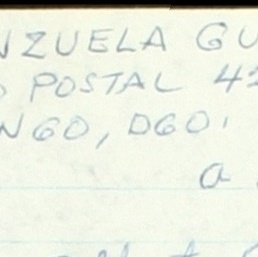 NZUELA GU
POSTAL 42
NGO, DGO.
a